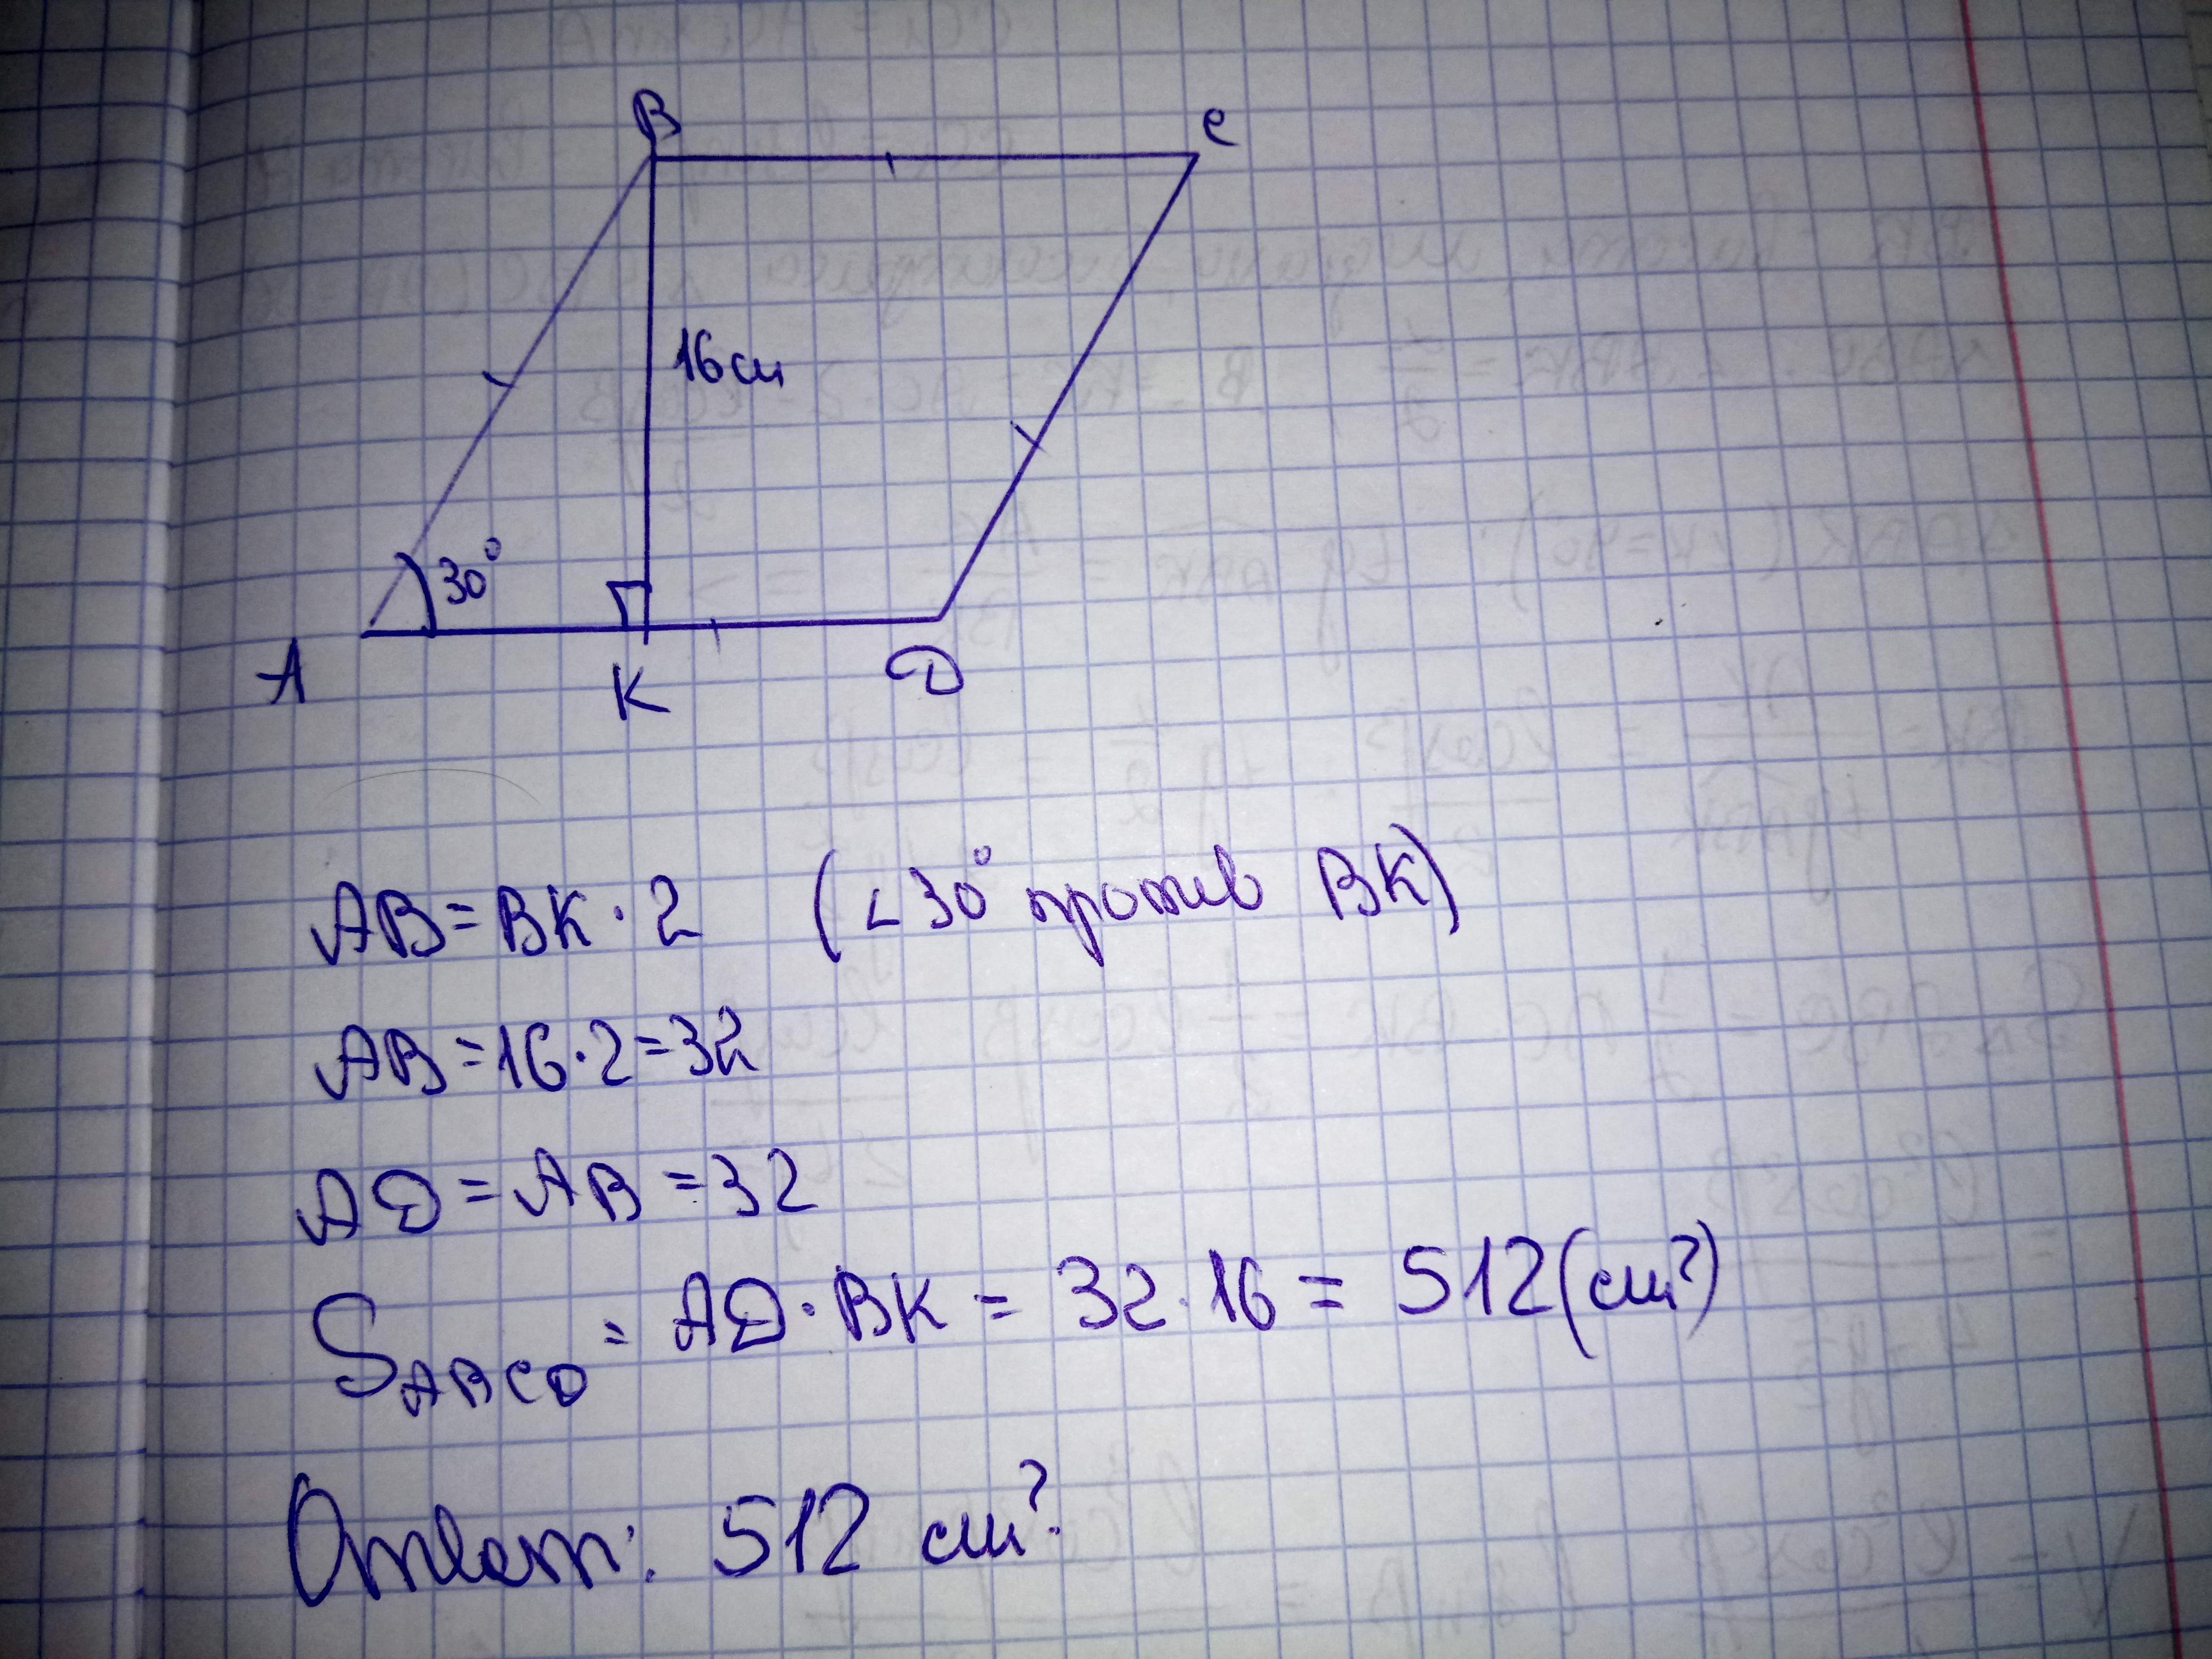 B
C
16см
30°
A
K
D
AB = BK · 2 (∠30° против BK)
AB = 16 · 2 = 32
AD = AB = 32
S ABCD = AD · BK = 32 · 16 = 512 (см²)
Ответ: 512 см².